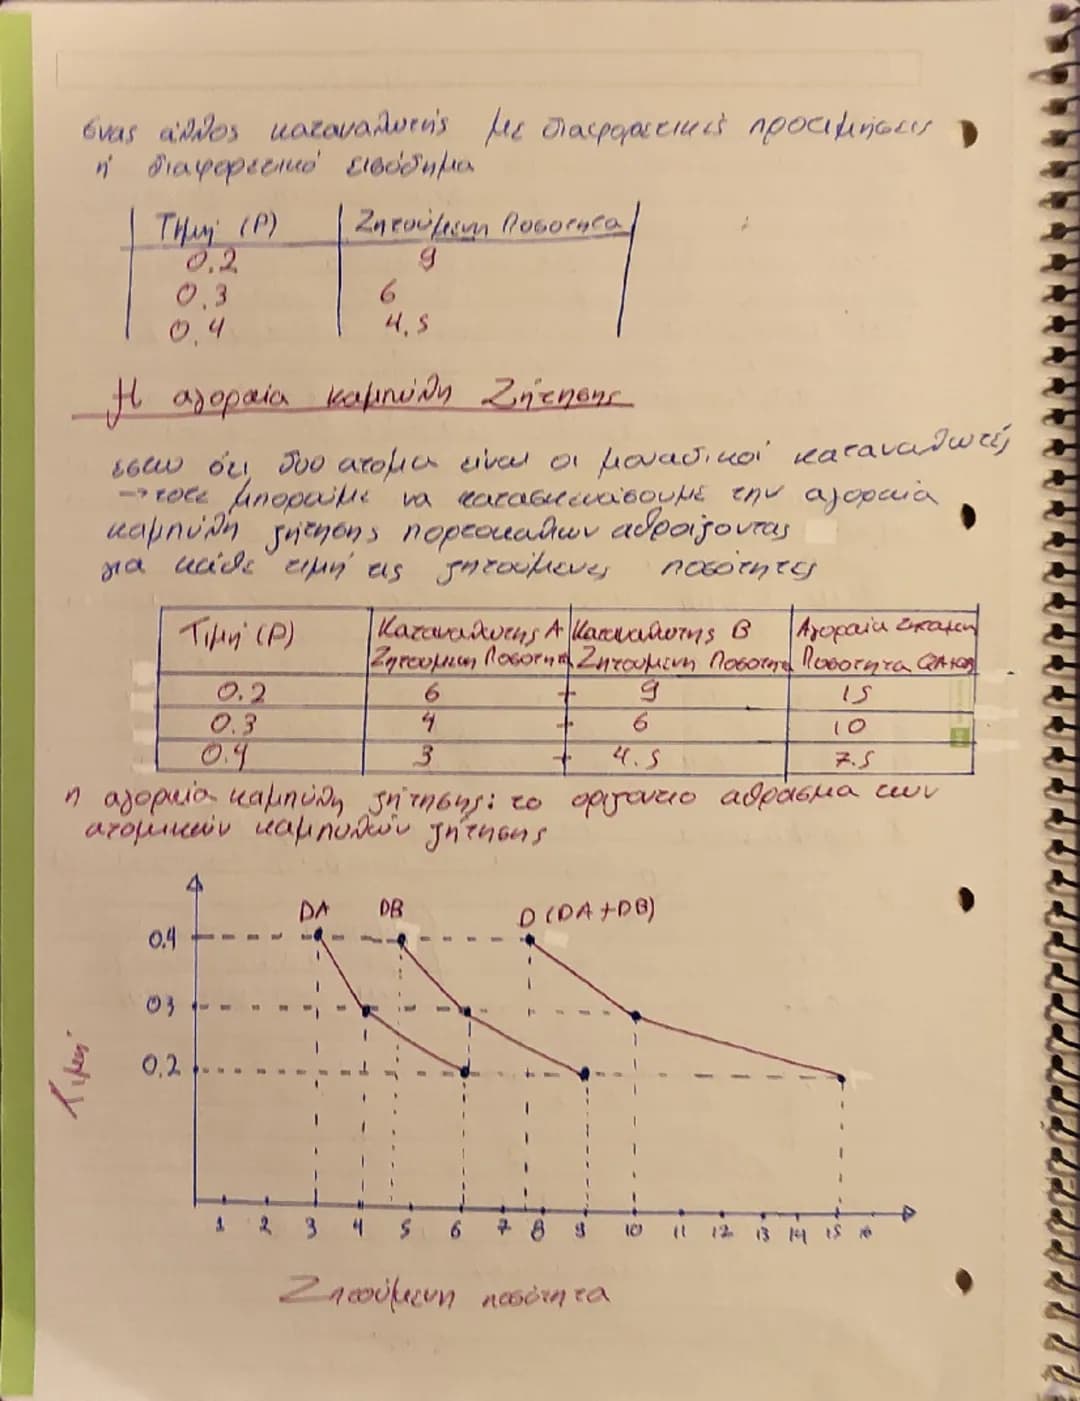 ένας άλλος καταναλωτής με διαφορετικές προτιμήσεις
ή διαφορετικό εισόδημα
Τιμή (P) Ζητούμενη Ποσότητα
0.2 9
0.3 6
0.4 4.5
Η αγοραία καμπύλη Ζήτησης
έστω ότι δυο ατομα είναι οι μοναδικοί καταναλωτές
→ τότε μπορούμε να κατασκευάσουμε την αγοραία
καμπύλη ζήτησης πορτοκαλιων αθροίζοντας
για κάθε τιμή τις ζητούμενες ποσότητες
Τιμή (P) Καταναλωτης Α Καταναλωτης Β Αγοραία
Ζητουμενη Ποσοτητα Ζητουμενη Ποσοτητα Ποσοτητα
0.2 6 + 9 15
0.3 4 + 6 10
0.4 3 + 4.5 7.5
η αγοραια καμπύλη ζήτησης: το οριζοντιο αθροισμα των
ατομικών καμπυλών ζήτησης
DA DB D (DA+DB)
0.4
03
0.2
Τιμή
1 2 3 4 5 6 7 8 9 10 11 12 13 14 15 16
Ζητούμενη ποσότητα